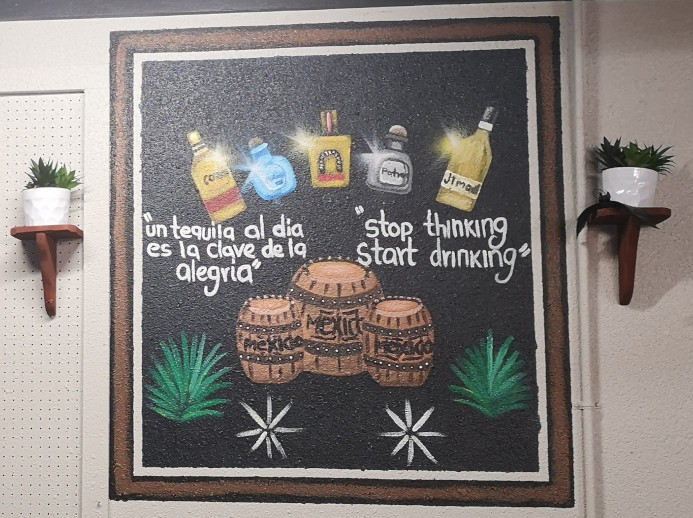 "un tequila al dia
es la clave de la
alegria"
"stop thinking
start drinking"
MEXICO
MEXICO